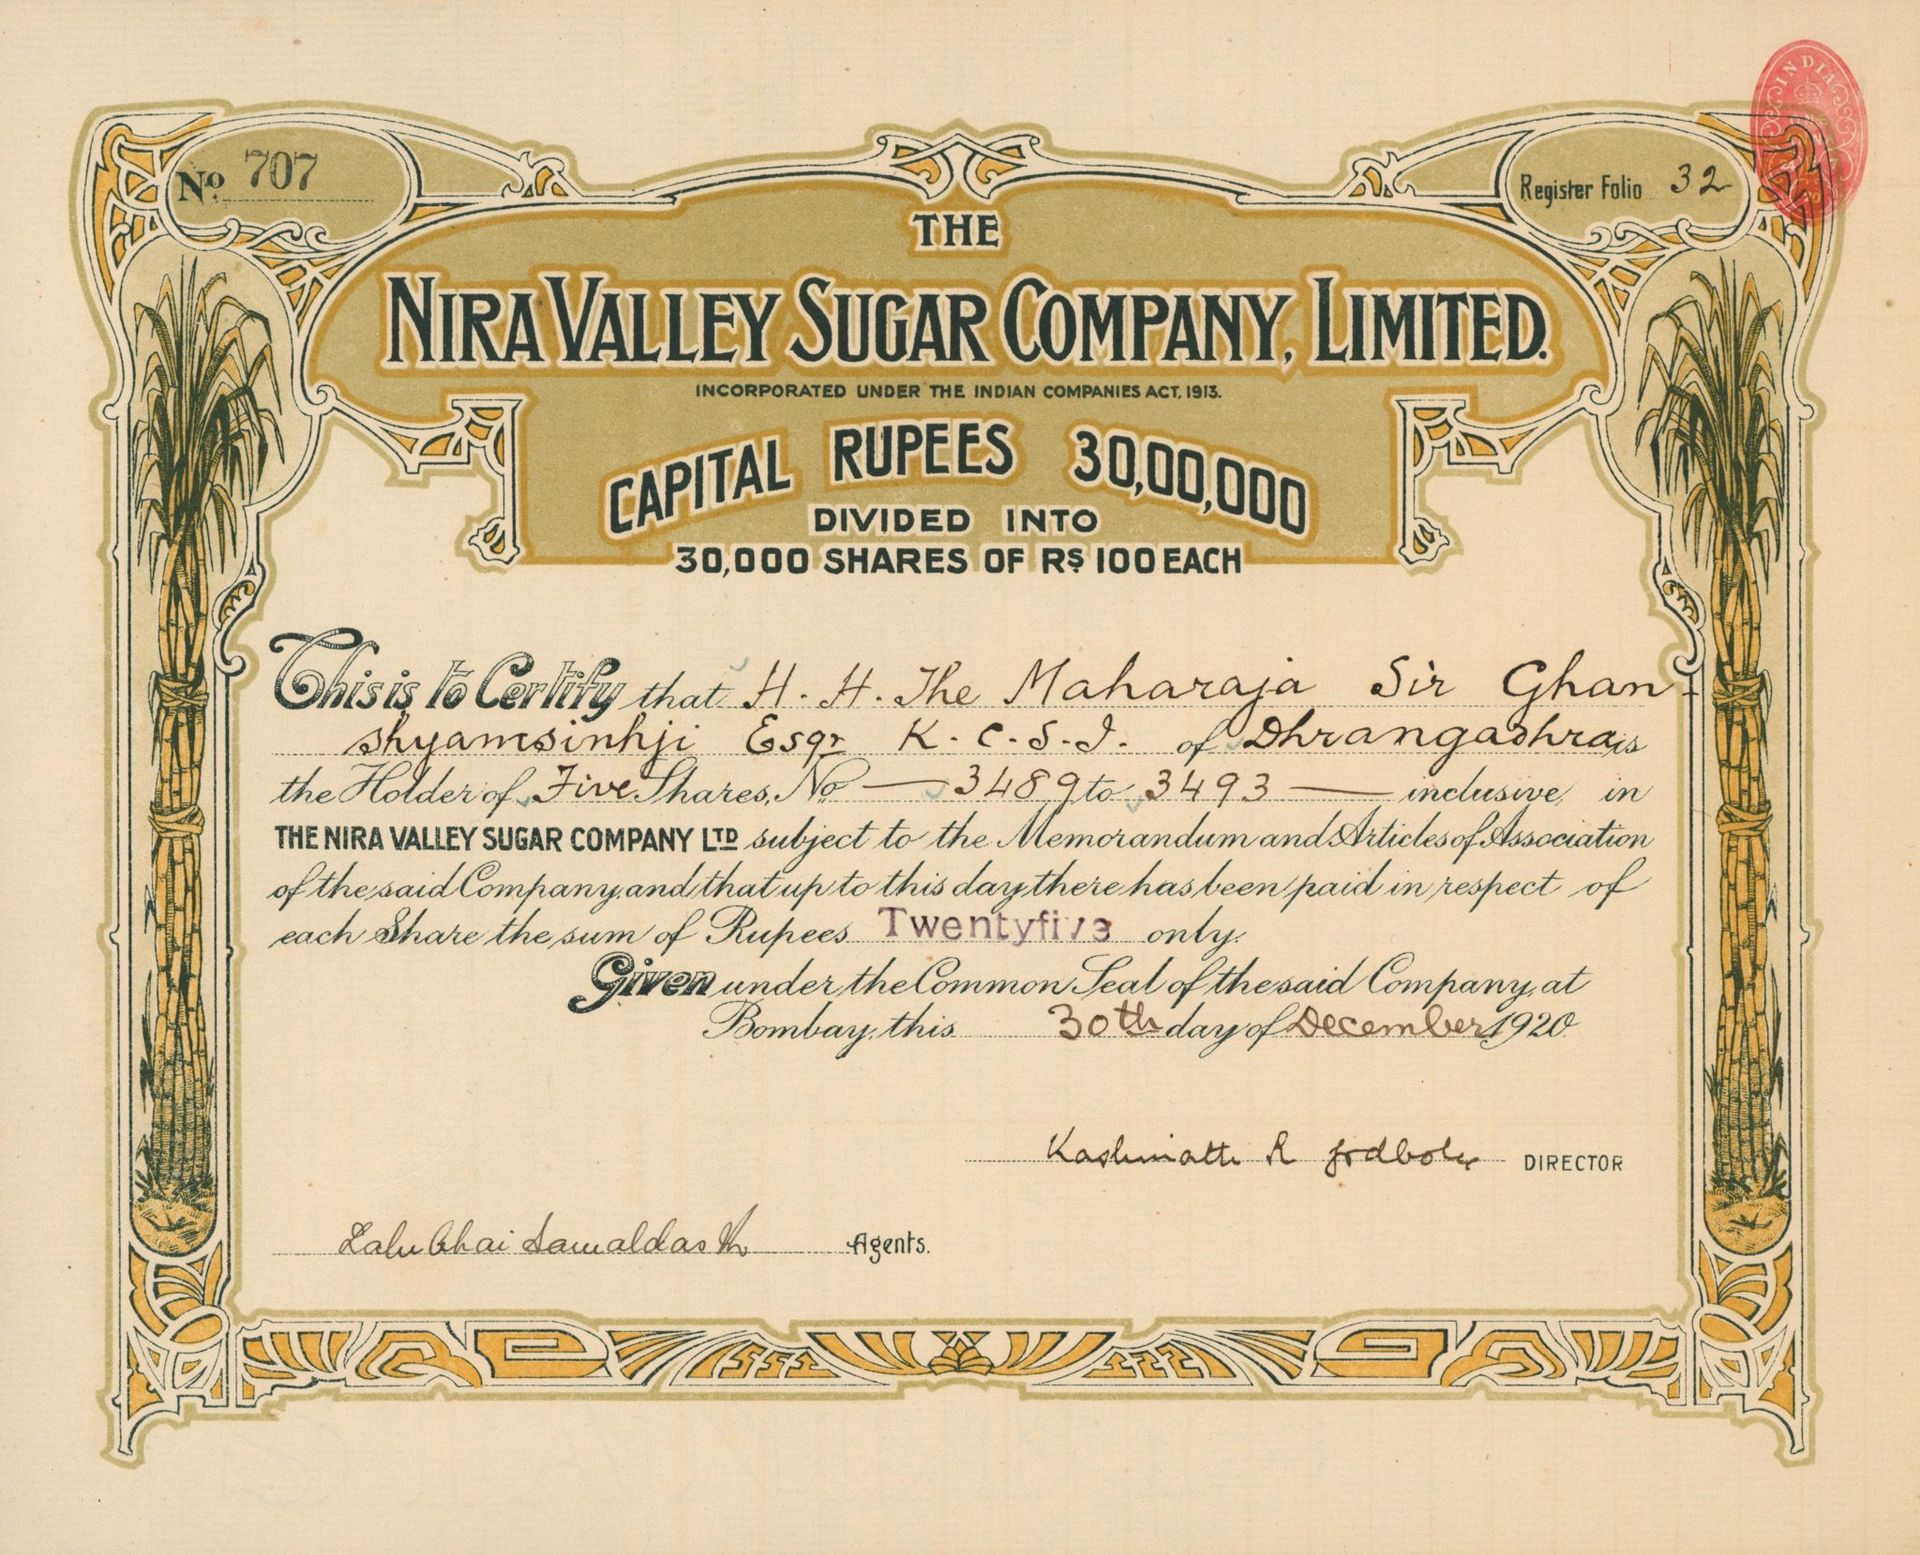 No. 707
Register Folio 32
INDIA
THE
NIRA VALLEY SUGAR COMPANY, LIMITED.
INCORPORATED UNDER THE INDIAN COMPANIES ACT, 1913.
CAPITAL RUPEES 30,00,000
DIVIDED INTO
30,000 SHARES OF RS 100 EACH
This is to Certify that H. H. The Maharaja Sir Ghan-
shyamsinhji Esqr K.C.S.I. of Dhrangadhra is
the Holder of Five Shares, No — 3489 to 3493 — inclusive, in
THE NIRA VALLEY SUGAR COMPANY LTD subject to the Memorandum and Articles of Association
of the said Company, and that up to this day there has been paid in respect of
each Share the sum of Rupees Twentyfive only.
Given under the Common Seal of the said Company, at
Bombay, this 30th day of December 1920
Kashinath R Godbole DIRECTOR
Lalubhai Samaldas Agents.